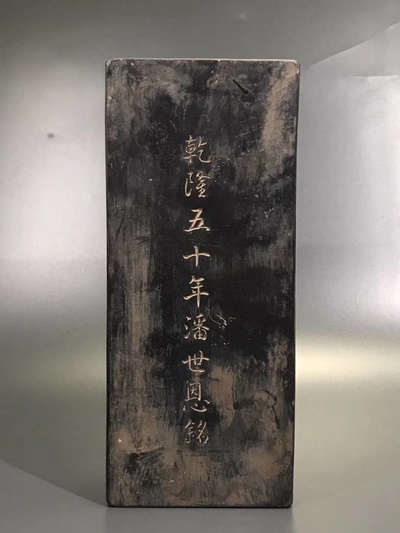 乾隆五十年潘世恩銘